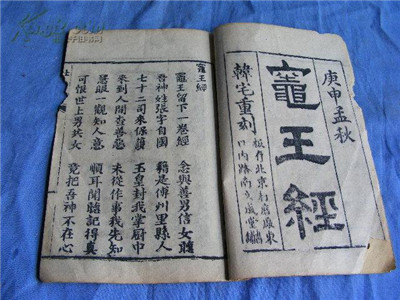 庚申孟秋
竈王經
韓宅重刻
板存北京打磨厰東
口內路南文成堂
竈王經
竈王留下一卷經 念與善男信女聼
吾神姓張字自國 籍是傅州里縣人
七十二司來保護 玉皇封我掌厨中
來到人間查善惡 未從作事我先知
慧眼一觀知人意 順耳聞聼記得真
可恨世上男共女 竟把吾神不在心